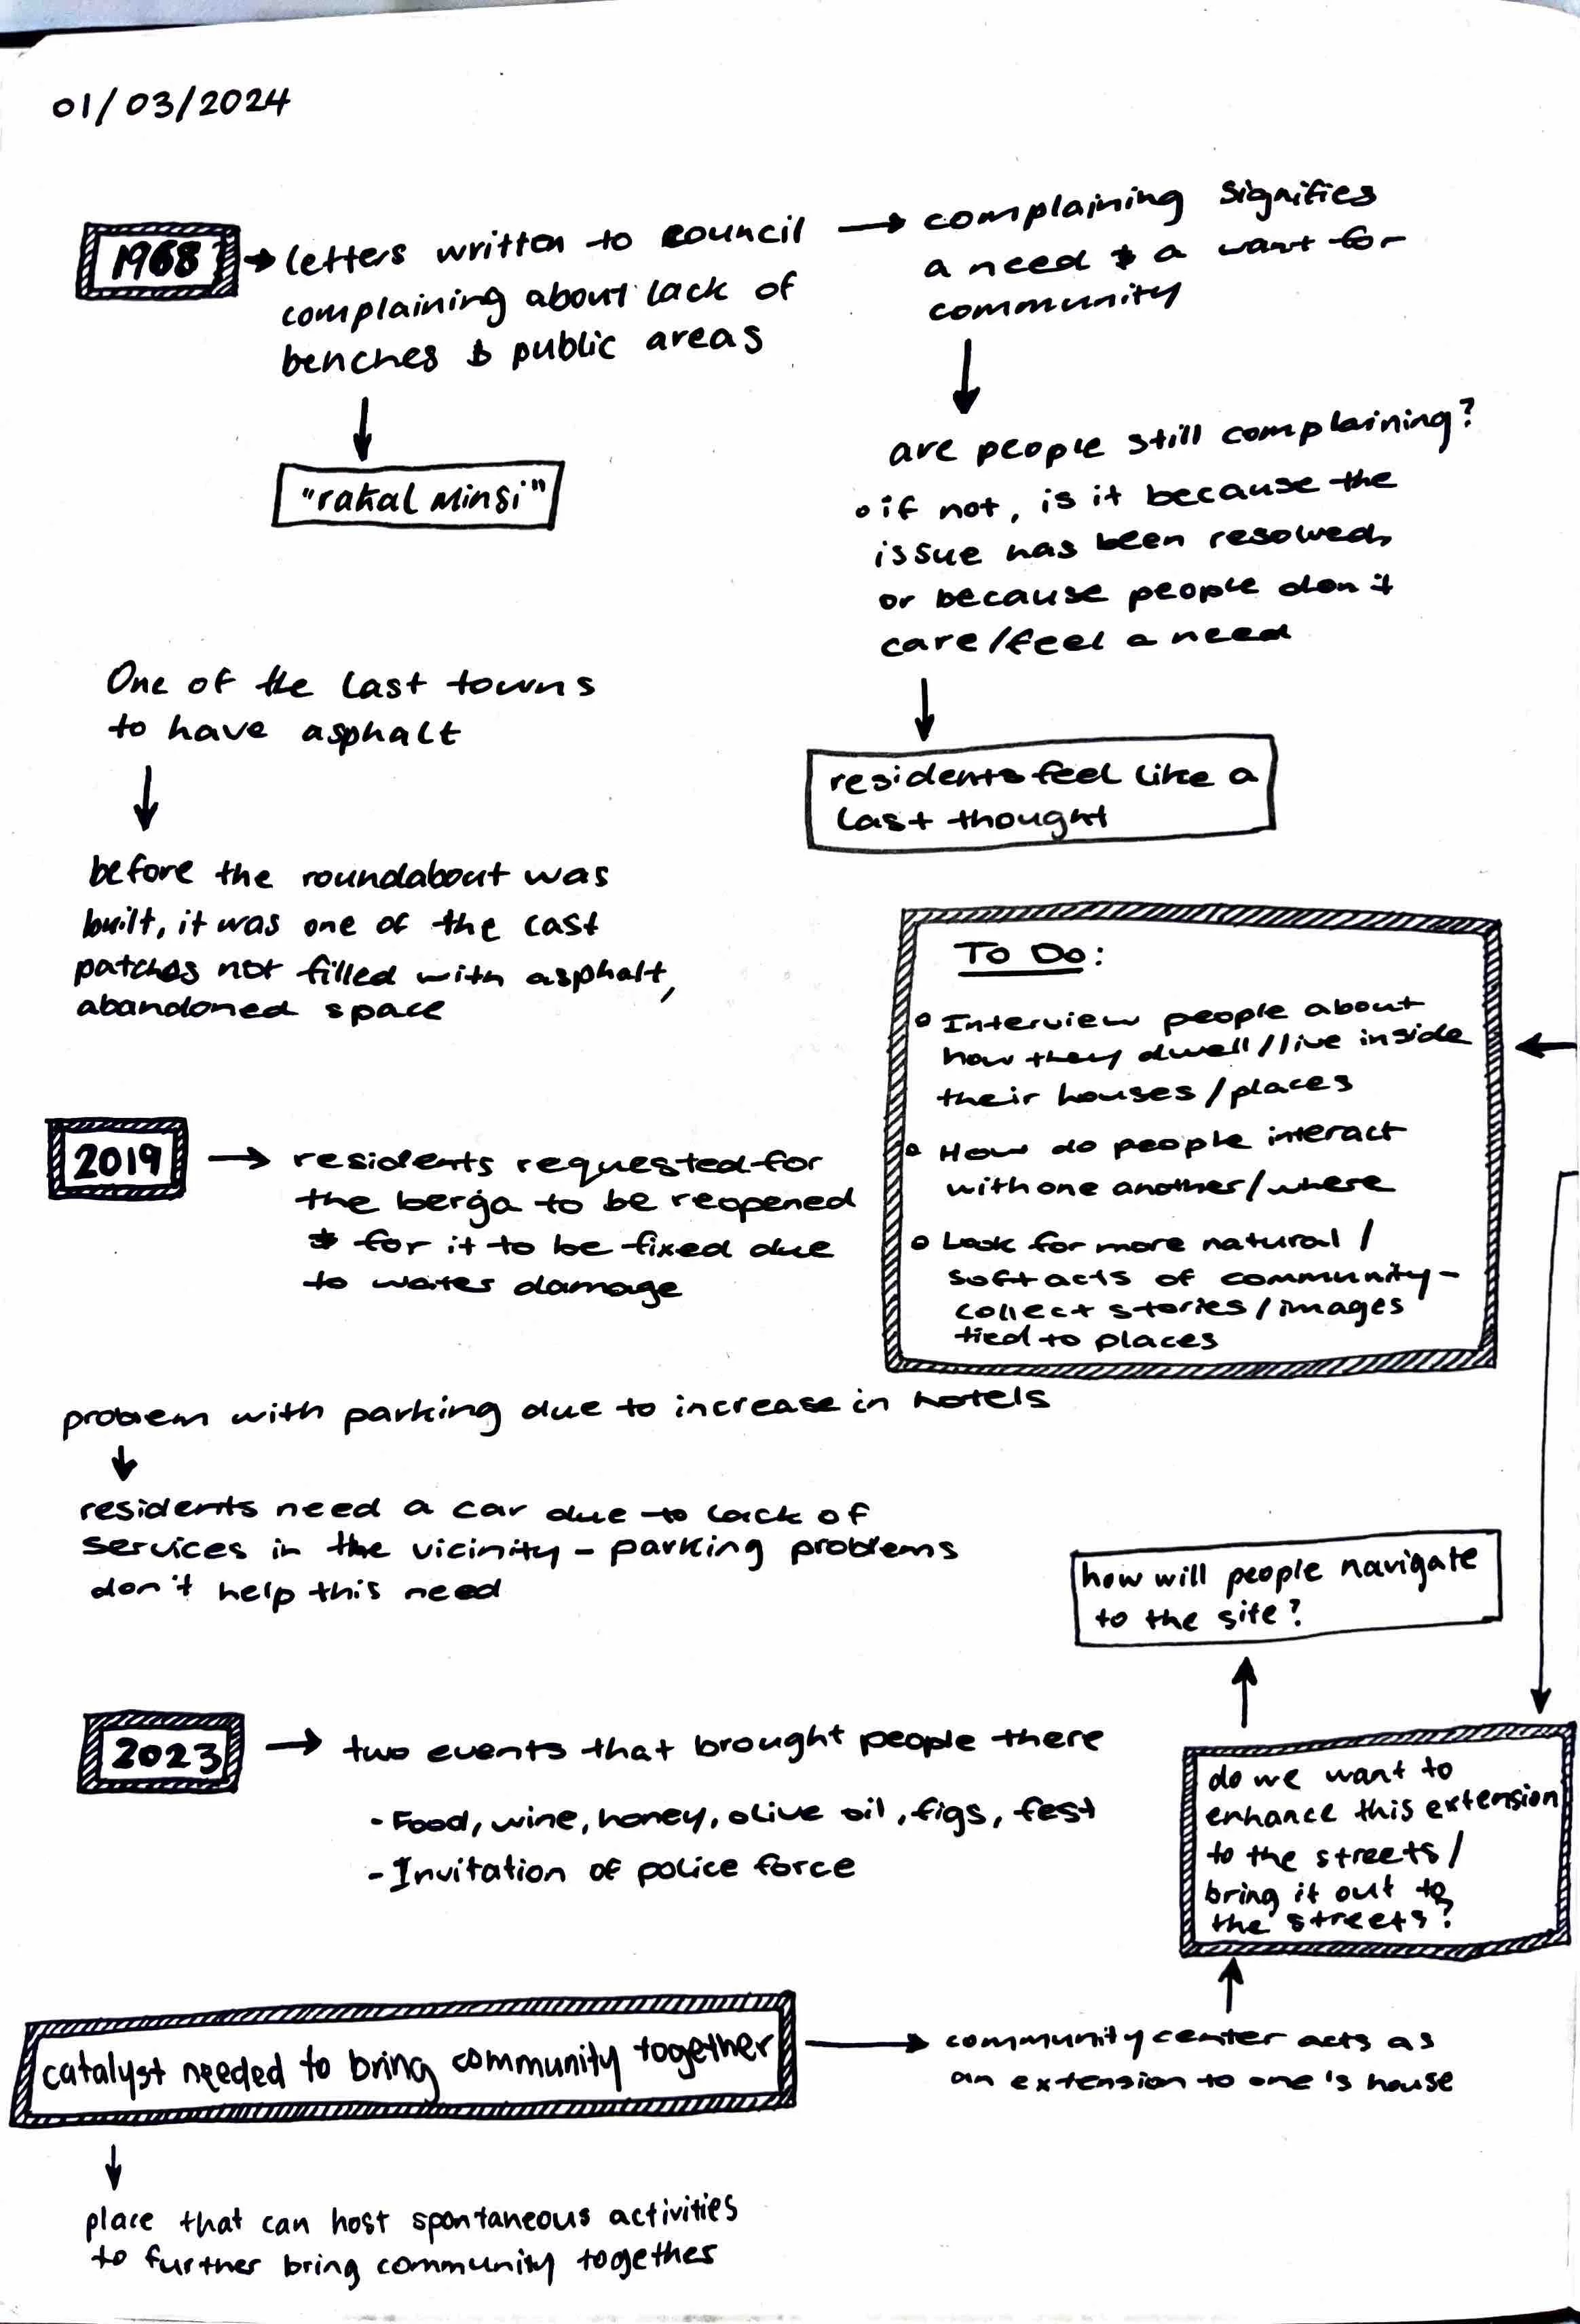 01/03/2024
1968
letters written to council
complaining about lack of
benches & public areas
"rakal Minsi"
complaining signifies
a need & a want for
community
are people still complaining?
• if not, is it because the
issue has been resolved,
or because people don't
care/feel a need
residents feel like a
last thought
One of the last towns
to have asphalt
before the roundabout was
built, it was one of the last
patches not filled with asphalt,
abandoned space
To Do:
• Interview people about
how they dwell//live inside
their houses/places
• How do people interact
with one another/where
• Look for more natural/
soft acts of community-
collect stories/images
tied to places
2019
residents requested for
the berġa to be reopened
& for it to be fixed due
to water damage
problem with parking due to increase in hotels
residents need a car due to lack of
services in the vicinity - parking problems
don't help this need
how will people navigate
to the site?
2023
two events that brought people there
- Food, wine, honey, olive oil, figs, fest
- Invitation of police force
do we want to
enhance this extension
to the streets/
bring it out to
the streets?
catalyst needed to bring community together
community center acts as
an extension to one's house
place that can host spontaneous activities
to further bring community together